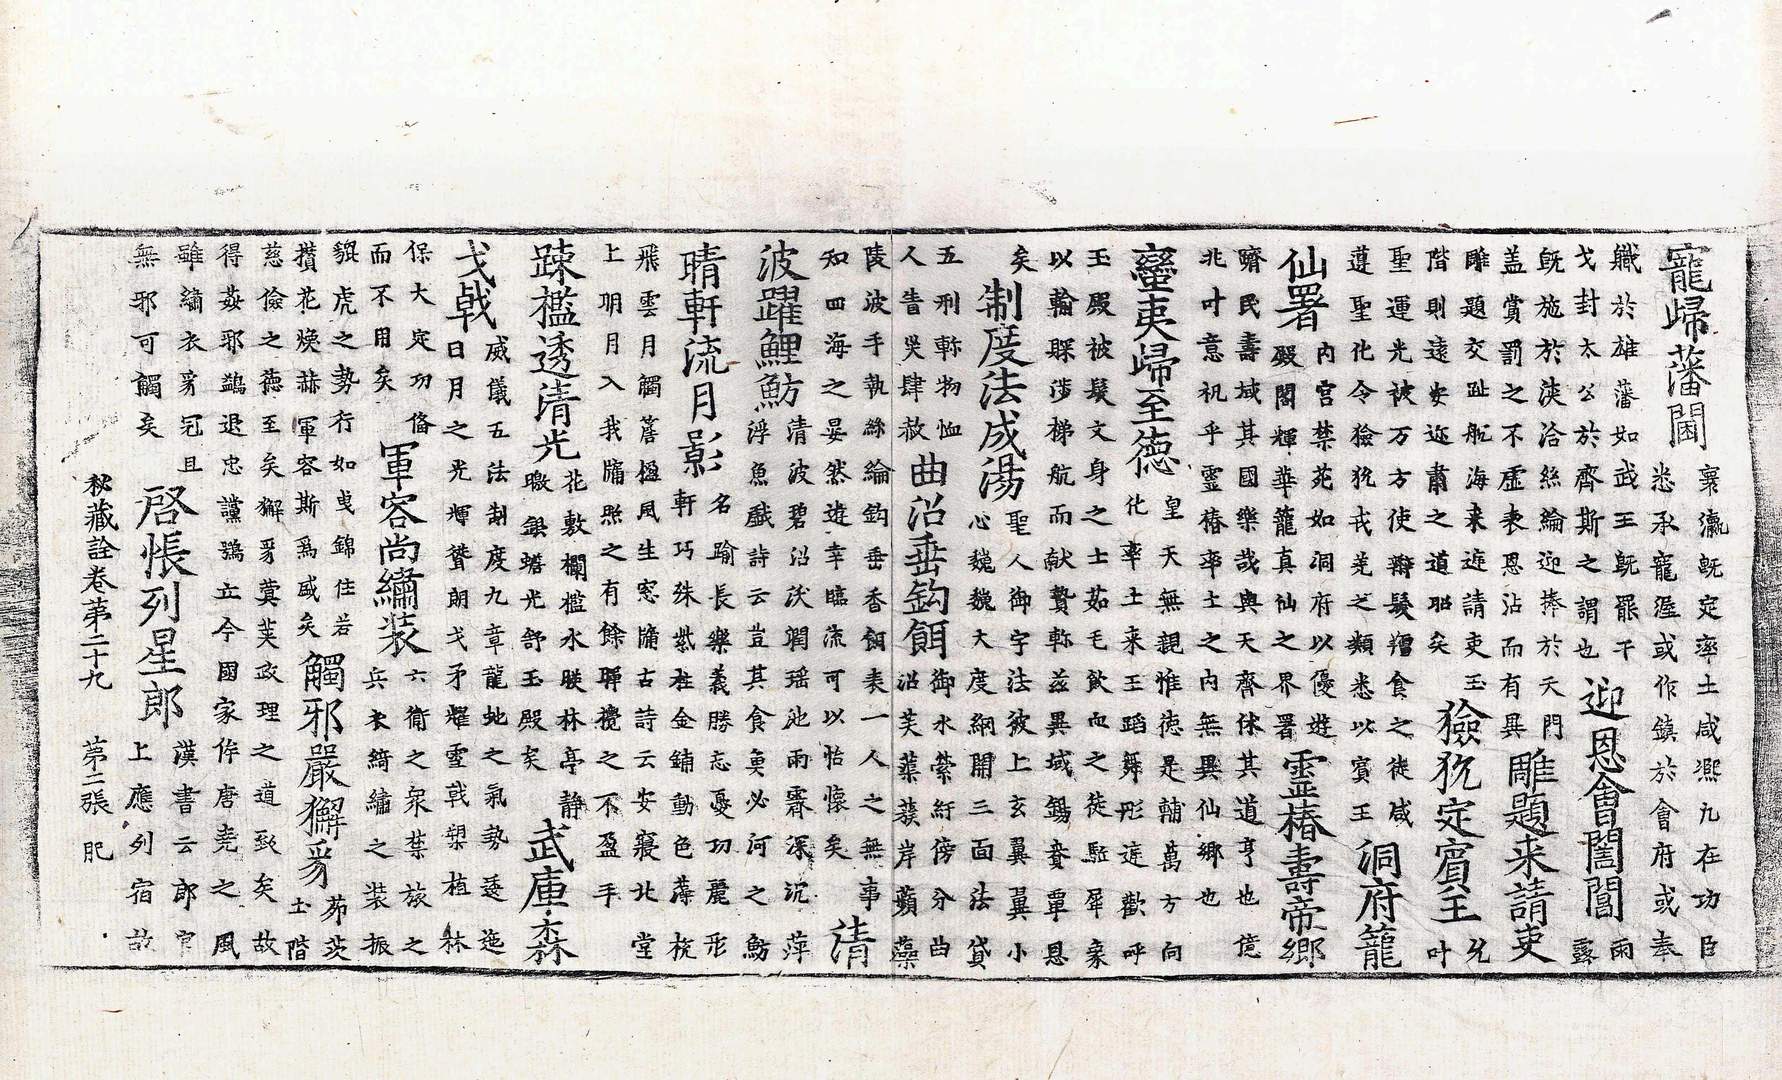 寵歸藩閫
寰瀛旣定率土咸凞九在功臣
悉承寵渥或作鎮於會府或奉
軄於雄藩如武王旣罷干
戈封太公於齊斯之謂也
迎恩會闔閭
雨
露
旣施於浹洽絲綸迎捧於天門
盖賞罰之不虛表恩沾而有異
雕題来請吏
雕題交趾舩海来遊請吏玉
階則遠安迩肅之道昭矣
獫狁定賓王
允
叶
聖運光被万方使辮髮羶食之徒咸
遵聖化令獫狁戎羌之類悉以賓王
洞府籠
仙署
内宮禁苑如洞府以優遊
殿閣輝華籠真仙之界署
靈椿壽帝鄉
躋民壽域其國樂哉與天齊休其道亨也億
兆叶意祝乎靈椿率土之内無異仙鄉也
蠻夷歸至德
皇天無親惟德是輔萬方向
化率土来王蹈舞彤逹歡呼
玉殿被髮文身之士茹毛飲血之徒駈犀象
以輸賝涉梯航而献贄斾玆異域錫賚覃恩
矣
制度法成湯
聖人御宇法彼上玄翼翼小
心巍巍大度網開三面法貸
五刑斾物恤
人眚災肆赦
曲沼垂鈎餌
御水縈紆傍分曲
沼芙蕖蔟岸蘋藻
陵波手執絲綸鈎垂香餌表一人之無事
知四海之晏然遊幸臨流可以怡懷矣
清
波躍鯉魴
清波碧沼汱澗瑶池雨霽深沉萍
浮魚戲詩云豈其食魚必河之魴
晴軒流月影
名踰長樂義勝忘憂功麗形
軒巧殊紫柱金鋪動色薄梳
飛雲月觸簷楹風生窓牖古詩云安寢北堂
上明月入我牖照之有餘暉攬之不盈手
疎檻透清光
花敷欄檻水映林亭静
暾銀蟾光舒玉殿矣
武庫森
戈戟
威儀五法制度九章龍虵之氣勢逶迤
日月之光輝聳朗戈矛耀雪戟槊植林
保大定功俻
而不用矣
軍容尚繡裝
六衛之衆禁旅之
兵衣綺繡之裝振
貔虎之勢行如曳錦住若
攅花煥赫軍容斯爲盛矣
觸邪嚴獬豸
茆茨
土階
慈儉之德至矣獬豸蓂莢政理之道致矣故
得姦邪鷁退忠讜鶚立今國家侔唐堯之風
雖繡衣豸冠且
無邪可觸矣
啓悵列星郎
漢書云郎官
上應列宿故
秘藏詮卷第二十九 第二張 肥